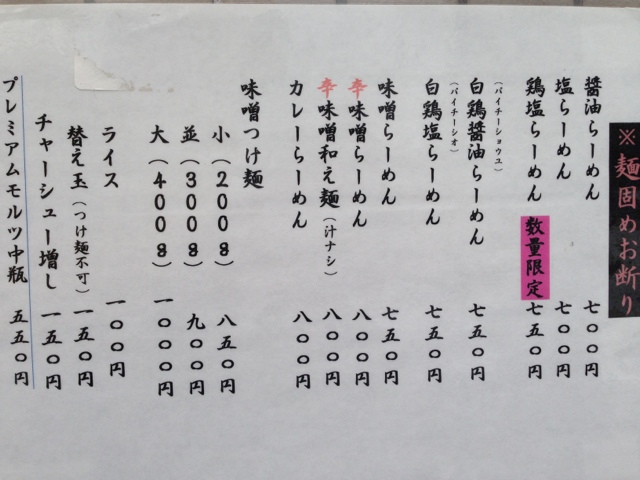 ※麺固めお断り
醤油らーめん 七〇〇円
塩らーめん 七〇〇円
鶏塩らーめん 数量限定 七五〇円
(バイチーショウユ)
白鶏醤油らーめん 七五〇円
(バイチーシオ)
白鶏塩らーめん 七五〇円
味噌らーめん 七五〇円
辛味噌らーめん 八〇〇円
辛味噌和え麺(汁ナシ) 八〇〇円
カレーらーめん 八〇〇円
味噌つけ麺
小(200g) 八五〇円
並(300g) 九〇〇円
大(400g) 一〇〇〇円
ライス 一〇〇円
替え玉(つけ麺不可) 一五〇円
チャーシュー増し 一五〇円
プレミアムモルツ中瓶 五五〇円